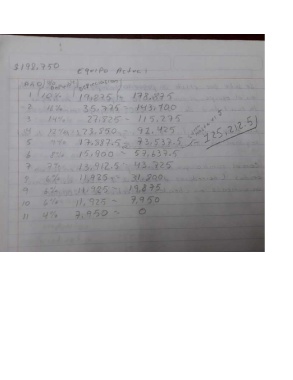 $198,750
Equipo Actual:
AÑO %
1 10% 19,875 178,875
2 18% 35,775 - 143,100
3 14% 27,825 - 115,275
12% 23,850 - 91,425
5 17,887.5 - 73,537.5
6 8% 15,900 - 57,637.5
7 7% 13,912.5 43,725
6% 11,925 31,800
6% 11,925 19,875
10 6% 11,925 - 7,950
11 4% 7,950 - 0
125,212.5